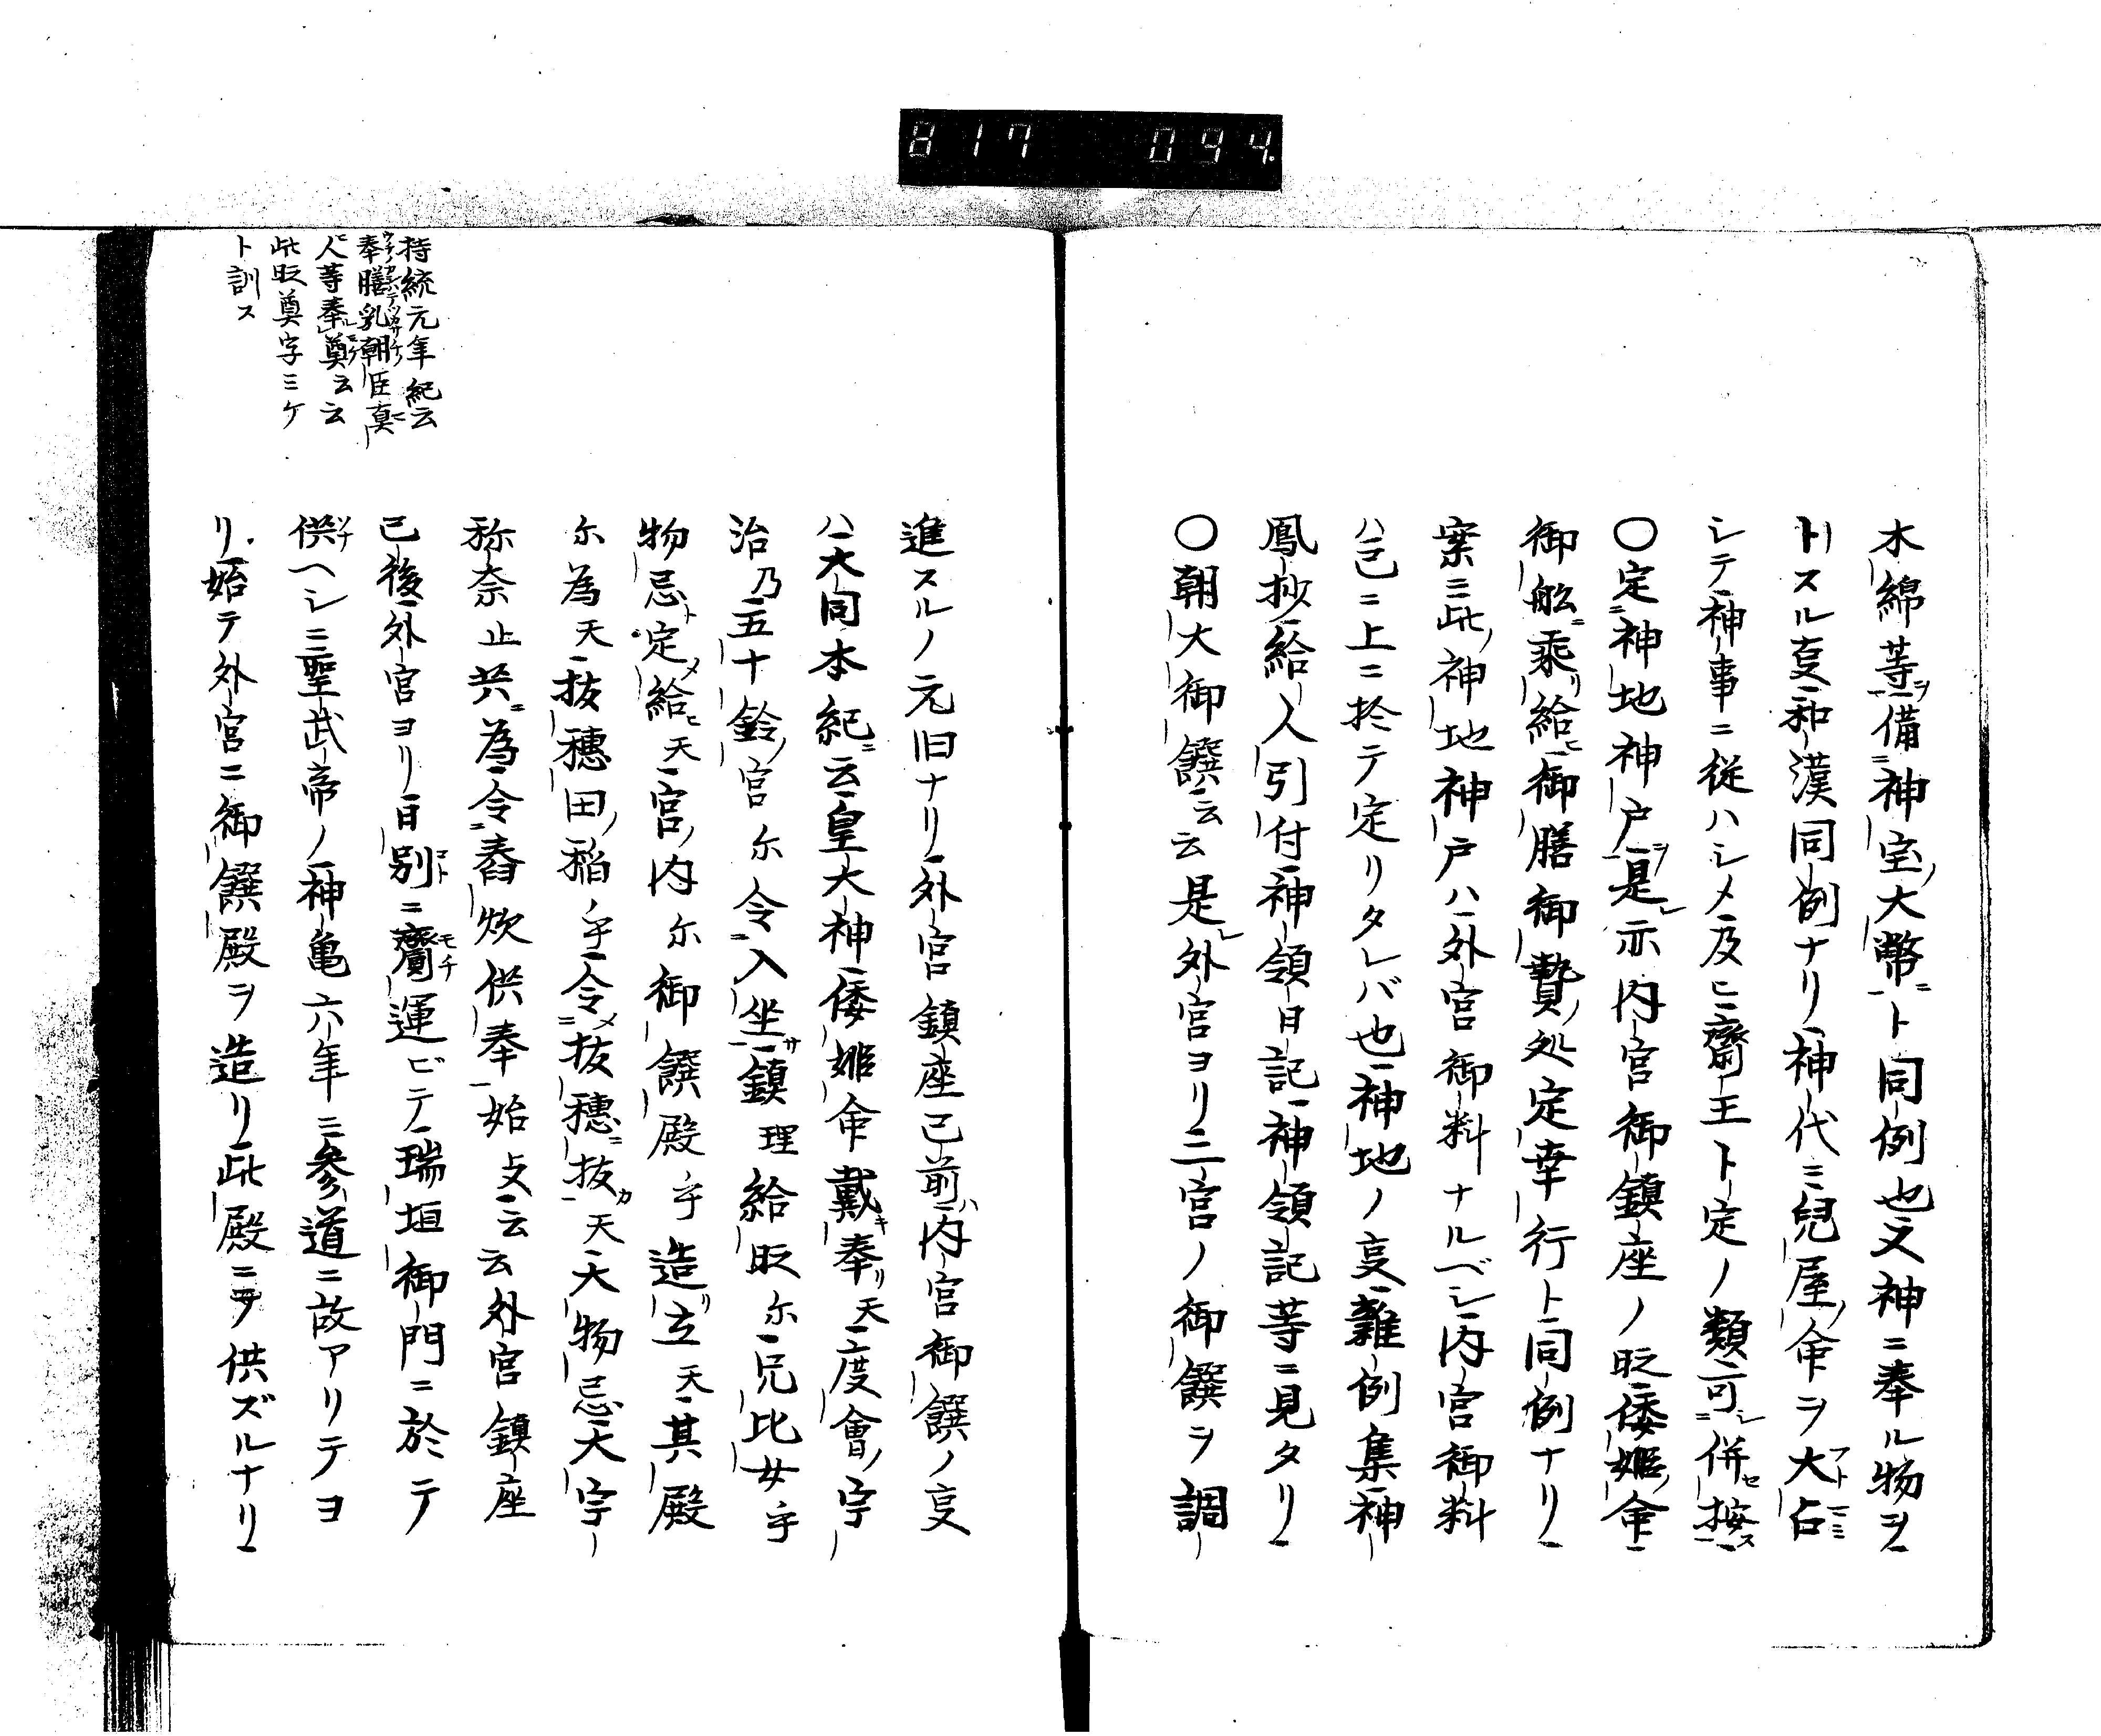 817 094
木綿等ヲ備神宝大幣ニト同例也又神ニ奉ル物ヲ
トスル㕝和漢同例ナリ神代ニ兒屋命ヲ大占
シテ神事ニ従ハシメ及ヒ齋王ト定ノ類可併按
〇定神地神戸ヲ是レ亦内宮御鎮座ノ時倭姫命
御舩乘給御膳御贄処定幸行ト同例ナリ
案ニ此神地神戸ハ外宮御料ナルベシ内宮御料
ハ已ニ上ニ於テ定リタレバ也神地ノ㕝雜例集神
鳳抄給人引付神領日記神領記等ニ見タリ
〇朝大御饌云云是レ外宮ヨリ二宮ノ御饌ヲ調
進スルノ元旧ナリ外宮鎮座已前ハ内宮御饌ノ㕝
ハ大同本紀ニ云皇大神倭姫命戴キ奉リ天度會ノ宇
治乃五十鈴ノ宮尓令入坐サ鎮理給時尓兄比女乎
物忌ト定メ給ヒ天宮ノ内尓御饌殿乎造リ立天其殿
尓為天抜穂田ノ稲乎令抜穂ニ抜天大物忌大宇
祢奈止共ニ為令舂炊供奉始㕝云云外宮鎮座
已後外宮ヨリ日別コトニ齎モチ運ビテ瑞垣御門ニ於テ
供ソナヘシニ聖武帝ノ神亀六年ニ参道ニ故アリテヨ
リ始テ外宮ニ御饌殿ヲ造リ此殿ニテ供ズルナリ
持統元年紀云
奉膳乳朝臣真
人等奉奠云云
此時奠字ミケ
ト訓ス